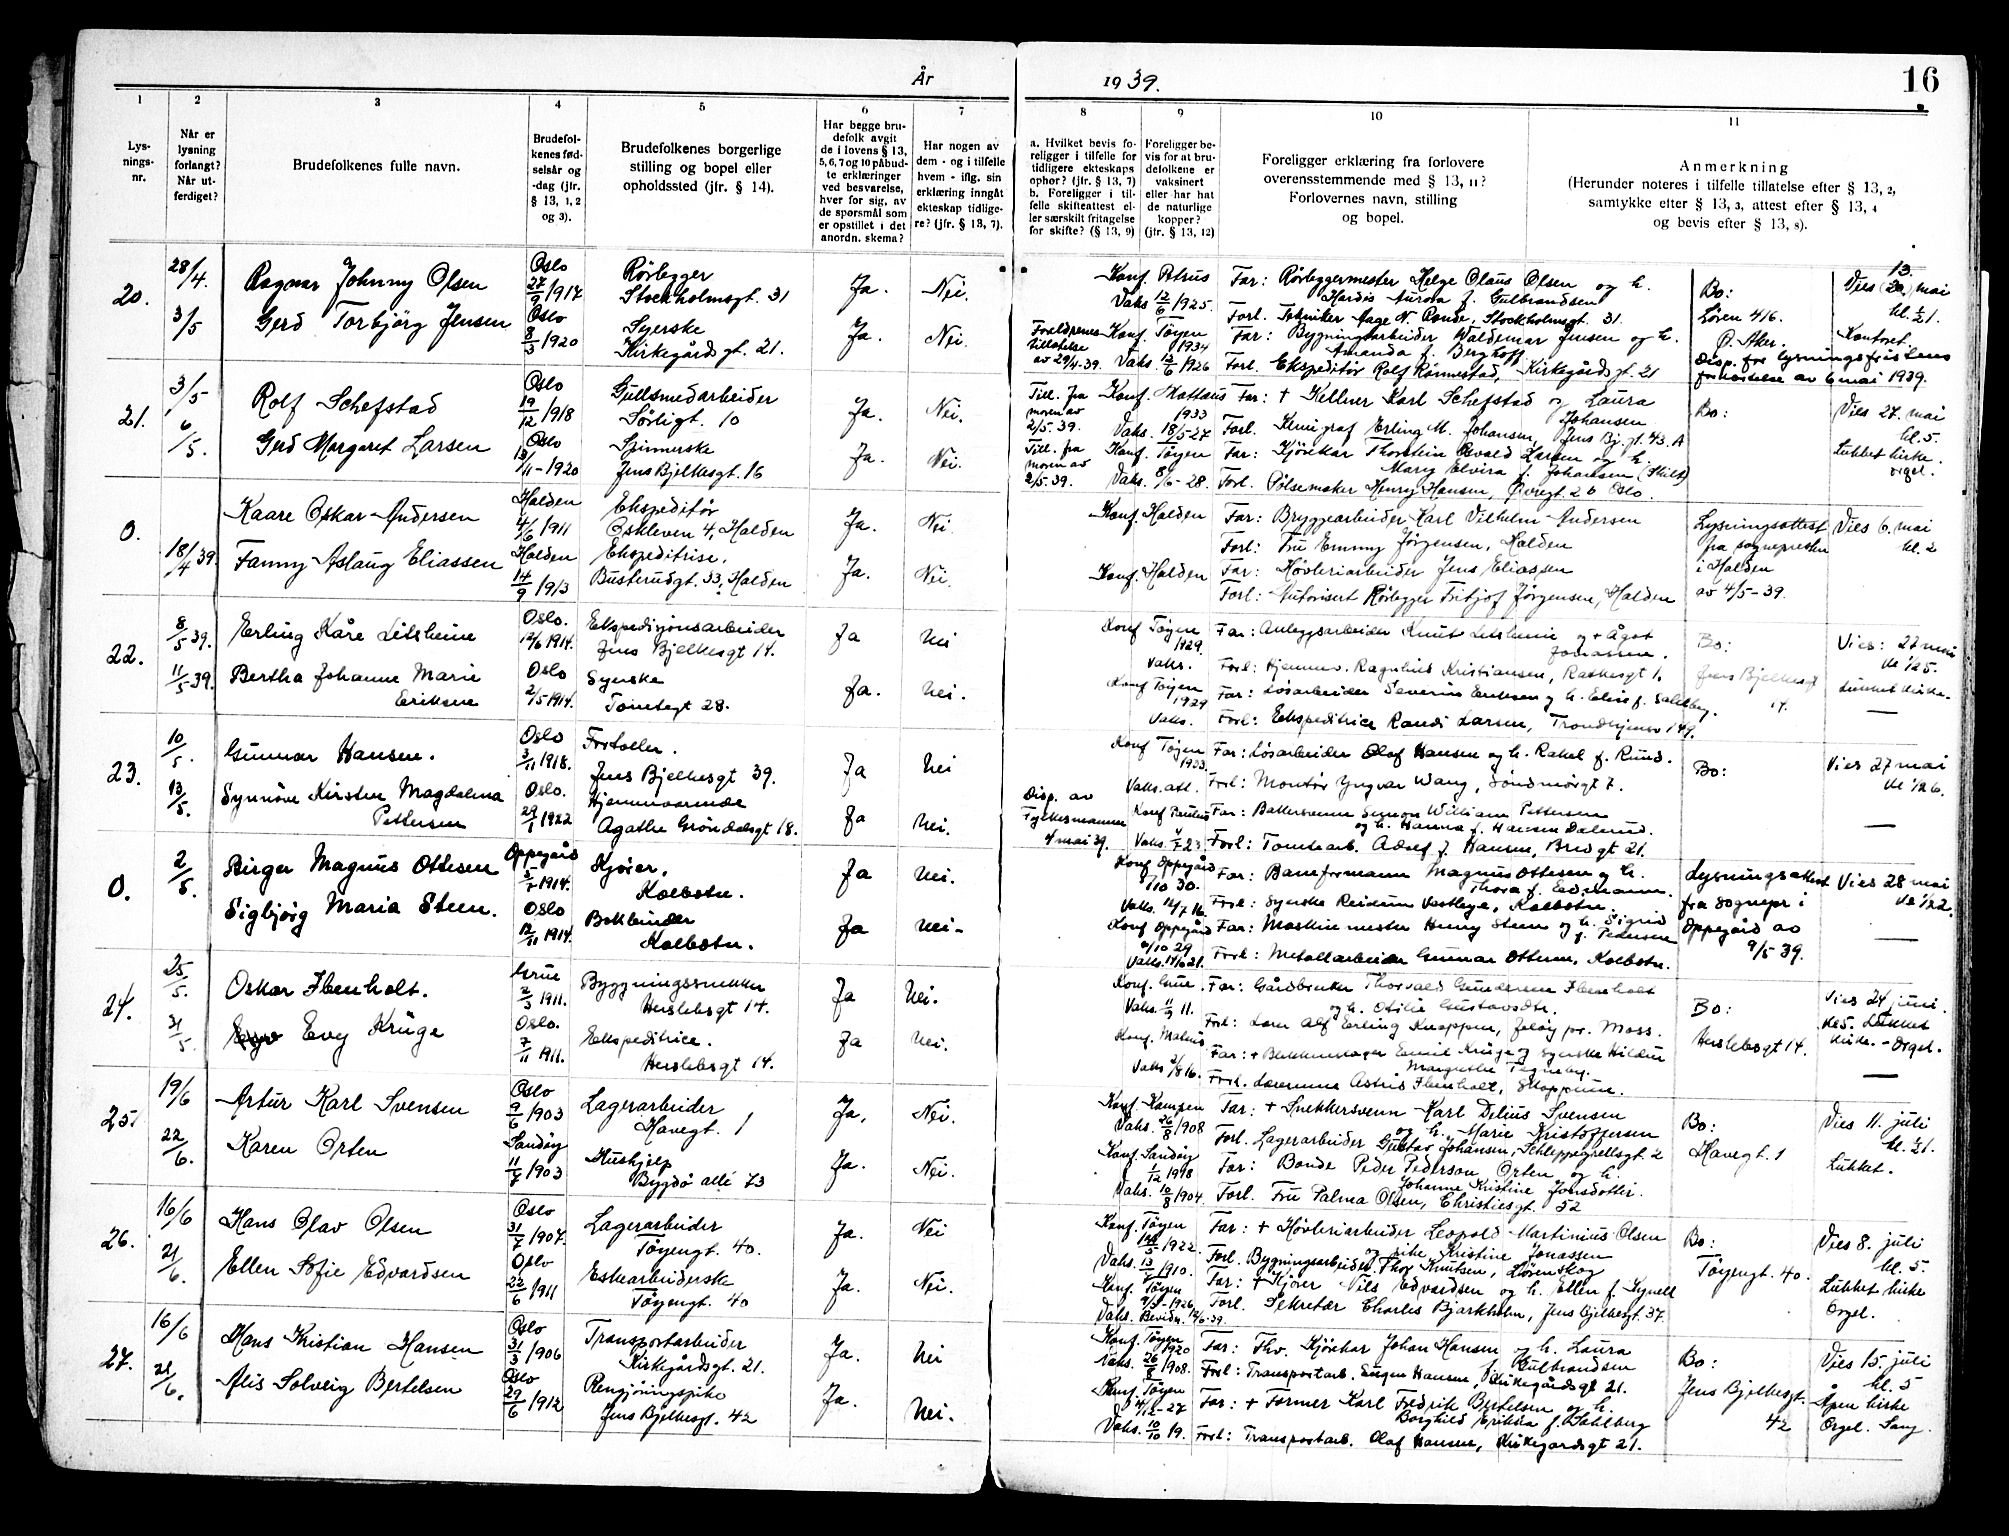 År 1939.
16
1 2 3 4 5 6 7 8 9 10 11
Lysningsnr.
Når er lysning forlangt? Når utferdiget?
Brudefolkenes fulle navn.
Brudefolkenes fødselsår og -dag (jfr. § 13, 1, 2 og 3).
Brudefolkenes borgerlige stilling og bopel eller opholdssted (jfr. § 14).
Har begge brudefolk avgit de i lovens § 13, 5, 6, 7 og 10 påbudte erklæringer ved besvarelse, hver for sig, av de spørsmål som er opstillet i det anordn. skema?
Har nogen av dem - og i tilfelle hvem - iflg. sin erklæring inngått ekteskap tidligere? (jfr. § 13, 7).
a. Hvilket bevis foreligger i tilfelle for tidligere ekteskaps ophør? (jfr. § 13, 7) b. Foreligger i tilfelle skifteattest eller særskilt fritagelse for skifte? (§ 13, 9)
Foreligger bevis for at brudefolkene er vaksinert eller har hat de naturlige kopper? (jfr. § 13, 12)
Foreligger erklæring fra forlovere overensstemmende med § 13, 11? Forlovernes navn, stilling og bopel.
Anmerkning (Herunder noteres i tilfelle tillatelse efter § 13, 2, samtykke efter § 13, 3, attest efter § 13, 4 og bevis efter § 13, 8).
20. 28/4 3/5
Ragnar Johnny Olsen
Oslo 27/9 1917
Rørlegger Stockholmsgt. 31
Ja. Nei.
Konf. Petrus Vaks 12/6 1925.
Far: Rørleggermester Helge Olaus Olsen og h. Hardis Aurora f. Gulbrandsen
Forl. Tekniker Aage N. Rande, Stockholmsgt. 31.
Gerd Torbjörg Jensen
Oslo 8/3 1920
Syerske Kirkegårdsgt. 21.
Ja. Nei.
Foreldrenes tillatelse av 29/4-39.
Konf. Tøyen 1934 Vaks. 12/6 1926
Far: Bygningsarbeider Waldemar Jensen og h. Amanda f. Berghoff
Forl. Ekspeditør Rolf Rønnestad, Kirkegårdsgt. 21
Bo: Løren 416. Ø. Aker.
Disp. for lysningsfristens forkortelse av 6 mai 1939.
Vies (20) 13. mai kl. ½1. Kontoret.
21. 3/5 6/5.
Rolf Schefstad
Oslo 19/12 1918
Gullsmedarbeider Sørligt. 10
Ja. Nei.
Till. fra moren av 2/5. 39.
Konf. Mattæus 1933 Vaks. 18/5-27
Far: + Kellner Karl Schefstad og Laura Johansen
Forl. Kemigraf Erling M. Johansen, Jens Bj. gt. 43. A
Gerd Margaret Larsen
Oslo 13/11-1920
Spinnerske Jens Bjelkesgt. 16
Ja. Nei.
Till. fra moren av 2/5. 39.
Konf. Tøyen Vaks. 8/6-28.
Far: Kjørekar Thorstein Osvald Larsen og h. Mary Elvira f. Johansen (Skilt)
Forl. Pølsemaker Henry Hansen, Øvregt. 26 Oslo.
Bo:
Vies 27. mai kl. 5. Lukket kirke. orgel.
0. 18/4 39.
Kaare Oskar Andersen
Halden 4/6 1911
Ekspeditør Oskleven 4, Halden
Ja. Nei
Konf. Halden
Far: Bryggearbeider Karl Vilhelm Andersen
Forl: Fru Emmy Jørgensen, Halden
Fanny Aslaug Eliassen
Halden 14/9 1913
Ekspeditrise. Busterudgt. 33, Halden
Ja. Nei.
Konf. Halden
Far: Høvleriarbeider Jens Eliassen
Forl: Autorisert Rørlegger Fritjof Jørgensen, Halden
Lysningsattest fra sognepresten i Halden av 4/5-39.
Vies 6. mai kl. 2
22. 8/5 39. 11/5 39.
Erling Kåre Litsheine
Oslo. 12/6 1914.
Ekspedisjonsarbeider Jens Bjelkesgt 14.
Ja Nei
Konf Tøyen 1929. Vaks.
Far: Anleggsarbeider Knut Litsheine og + Ågot Jonassen.
Forl: Hjemmev. Ragnhild Kristiansen, Raskesgt 1.
Bertha Johanne Marie Eriksen
Oslo 2/5 1914.
Syerske Tomtegt 28.
Ja. Nei.
Konf Tøyen 1929 Vaks.
Far: Løsarbeider Severin Eriksen og h. Elise f. Saltberg.
Forl: Ekspeditrice Randi Larsen, Trondhjemsv 149.
Bo: Jens Bjelkesgt 14.
Vies: 27 mai kl ½5. Lukket kirke.
23. 10/5. 13/5.
Gunnar Hansen.
Oslo 3/11 1918.
Fortoller. Jens Bjelkesgt 39.
Ja Nei
Konf Tøyen 1933. Vaks. att.
Far: Løsarbeider Olaf Hansen og h. Rakel f. Rund.
Forl: Montør Yngvar Wang, Søndmørgt 7.
Synnöve Kirsten Magdalena Pettersen
Oslo. 29/1 1922
Hjemmeværende Agathe Grøndalsgt 18.
Ja Nei.
Disp. av Fylkesmannen 4 mai 39.
Konf Paulus Vaks. 4/7 23
Far: Bakkersvenn Simon William Pettersen og h. Hanna f. Hansen Dalerud.
Forl: Tomtearb. Adolf J. Hansen, Bredgt 21.
Bo:
Vies 27 mai kl ½6.
0. 2/5.
Birger Magnus Ottesen
Oppegård 5/7 1914.
Kjører. Kolbotn.
Ja Nei.
Konf Oppegård /10 30. Vaks. 12/7 16.
Far: Baneformann Magnus Ottesen og h. Thora f. Edmann.
Forl: Syerske Reidun Vestleye, Kolbotn.
Sigbjörg Maria Steen.
Oslo 12/11 1914.
Bokbinder Kolbotn.
Ja Nei.
Konf Oppegård /10 29 Vaks. 14/6 21.
Far: Maskinmester Henry Steen og h. Sigrid f. Pedersen
Forl: Metallarbeider Gunnar Ottesen, Kolbotn.
Lysningsattest fra sognepr i Oppegård av 9/5 39.
Vies 28 mai kl ½2.
24. 25/5. 31/5.
Oskar Ibenholt.
Grue 2/3 1911.
Byggningssnekker Herslebsgt 14.
Ja Nei.
Konf. Grue. Vaks. 11/9 11.
Far: Gårdbruker Thorvald Gundersen Ibenholt og h. Otilie Gustavsdtr.
Forl: Lærer Alf Erling Knappen, Jeløy pr. Moss.
Evy Krüge
Oslo. 7/11 1911.
Ekspeditrice. Herslebsgt 14.
Ja Nei.
Konf. Matæus Vaks 3/8 16.
Far: + Blikkenslager Emil Krüge og Syerske Hildur Margrethe Tegneby.
Forl. Lærerinne Astrid Ibenholt, Skoppum.
Bo: Herslebsgt 14.
Vies 24 juni. kl 5. Lukket kirke. - Orgel.
25. 19/6 22/6.
Artur Karl Svensen
Oslo 9/6 1903
Lagerarbeider Havegt. 1
Ja, Nei.
Konf. Kampen Vaks. 26/8 1908
Far: + Snekkersvenn Karl Delius Svensen og h. Marie Kristoffersen
Forl. Lagerarbeider Gustav Johansen, Schleppegrellsgt. 2
Karen Orten
Sandøy 11/7 1903
Hushjelp Bygdø allé 73
Ja. Nei.
Konf. Sandøy 1/12 1918 Vaks. 10/8 1904.
Far: Bonde Peder Pederson Orten og h. Johanne Kristine Jonsdotter.
Forl. Fru Palma Olsen, Christiesgt. 52
Bo: Havegt. 1
Vies 11. juli kl. ½1. Lukket.
26. 16/6 21/6.
Hans Olav Olsen
Oslo 31/7 1907.
Lagerarbeider Tøyengt. 40.
Ja. Nei
Konf. Tøyen 1922. Vaks. 13/7 1910.
Far: + Høvleriarbeider Leopold Martinius Olsen og Kristine Jonassen
Forl. Bygningsarbeider Thor Knutsen, Lørenskog
Ellen Sofie Edvardsen
Oslo 22/6 1911
Eskearbeiderske Tøyengt. 40
Ja. Nei.
Konf. Tøyen 1926 Vaks. Bevidn. 12/6-39.
Far: + Kjører Nils Edvardsen og h. Ellen f. Kynell
Forl. Sekretær Charles Bjarkholm, Jens Bjelkesgt. 37.
Bo: Tøyengt. 40.
Vies 8. juli kl. 5. Lukket kirke Orgel.
27. 16/6 21/6.
Hans Kristian Hansen
Oslo 31/3 1906
Transportarbeider Kirkegårdsgt. 21.
Ja. Nei
Konf. Tøyen 1920 Vaks. 26/8 1908.
Far: Fhv. Kjørekar Johan Hansen og h. Laura f. Gulbrandsen
Forl: Transportarb. Eugen Hansen, Kirkegårdsgt 21.
Alis Solveig Bertelsen
Oslo 29/6 1912
Rengjøringspike Jens Bjelkesgt. 42
Ja. Nei.
Konf. Tøyen 4/12-27 Vaks. 10/10 19.
Far: + Former Karl Fredrik Bertelsen og h. Borghild Erikka f. Dahlberg
Forl: Transportarb. Olaf Hansen, Kirkegårdsgt 21.
Bo: Jens Bjelkesgt. 42
Vies 15. juli kl. 5 Åpen kirke Orgel. Sang.